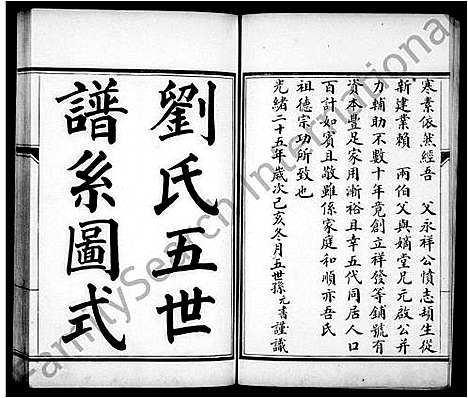 寒素依然經吾 父永祥公憤志頓生從
新建業賴 兩伯父與嫡堂兄元啟公并
力輔助不數十年竟創立祥發等鋪號有
資本豐足家用漸裕且幸五代同居人口
百計如賓且敬雖係家庭和順亦吾氏
祖德宗功所致也
光緒二十五年歲次己亥冬月五世孫元書謹識
劉氏五世
譜系圖式
FamilySearch International